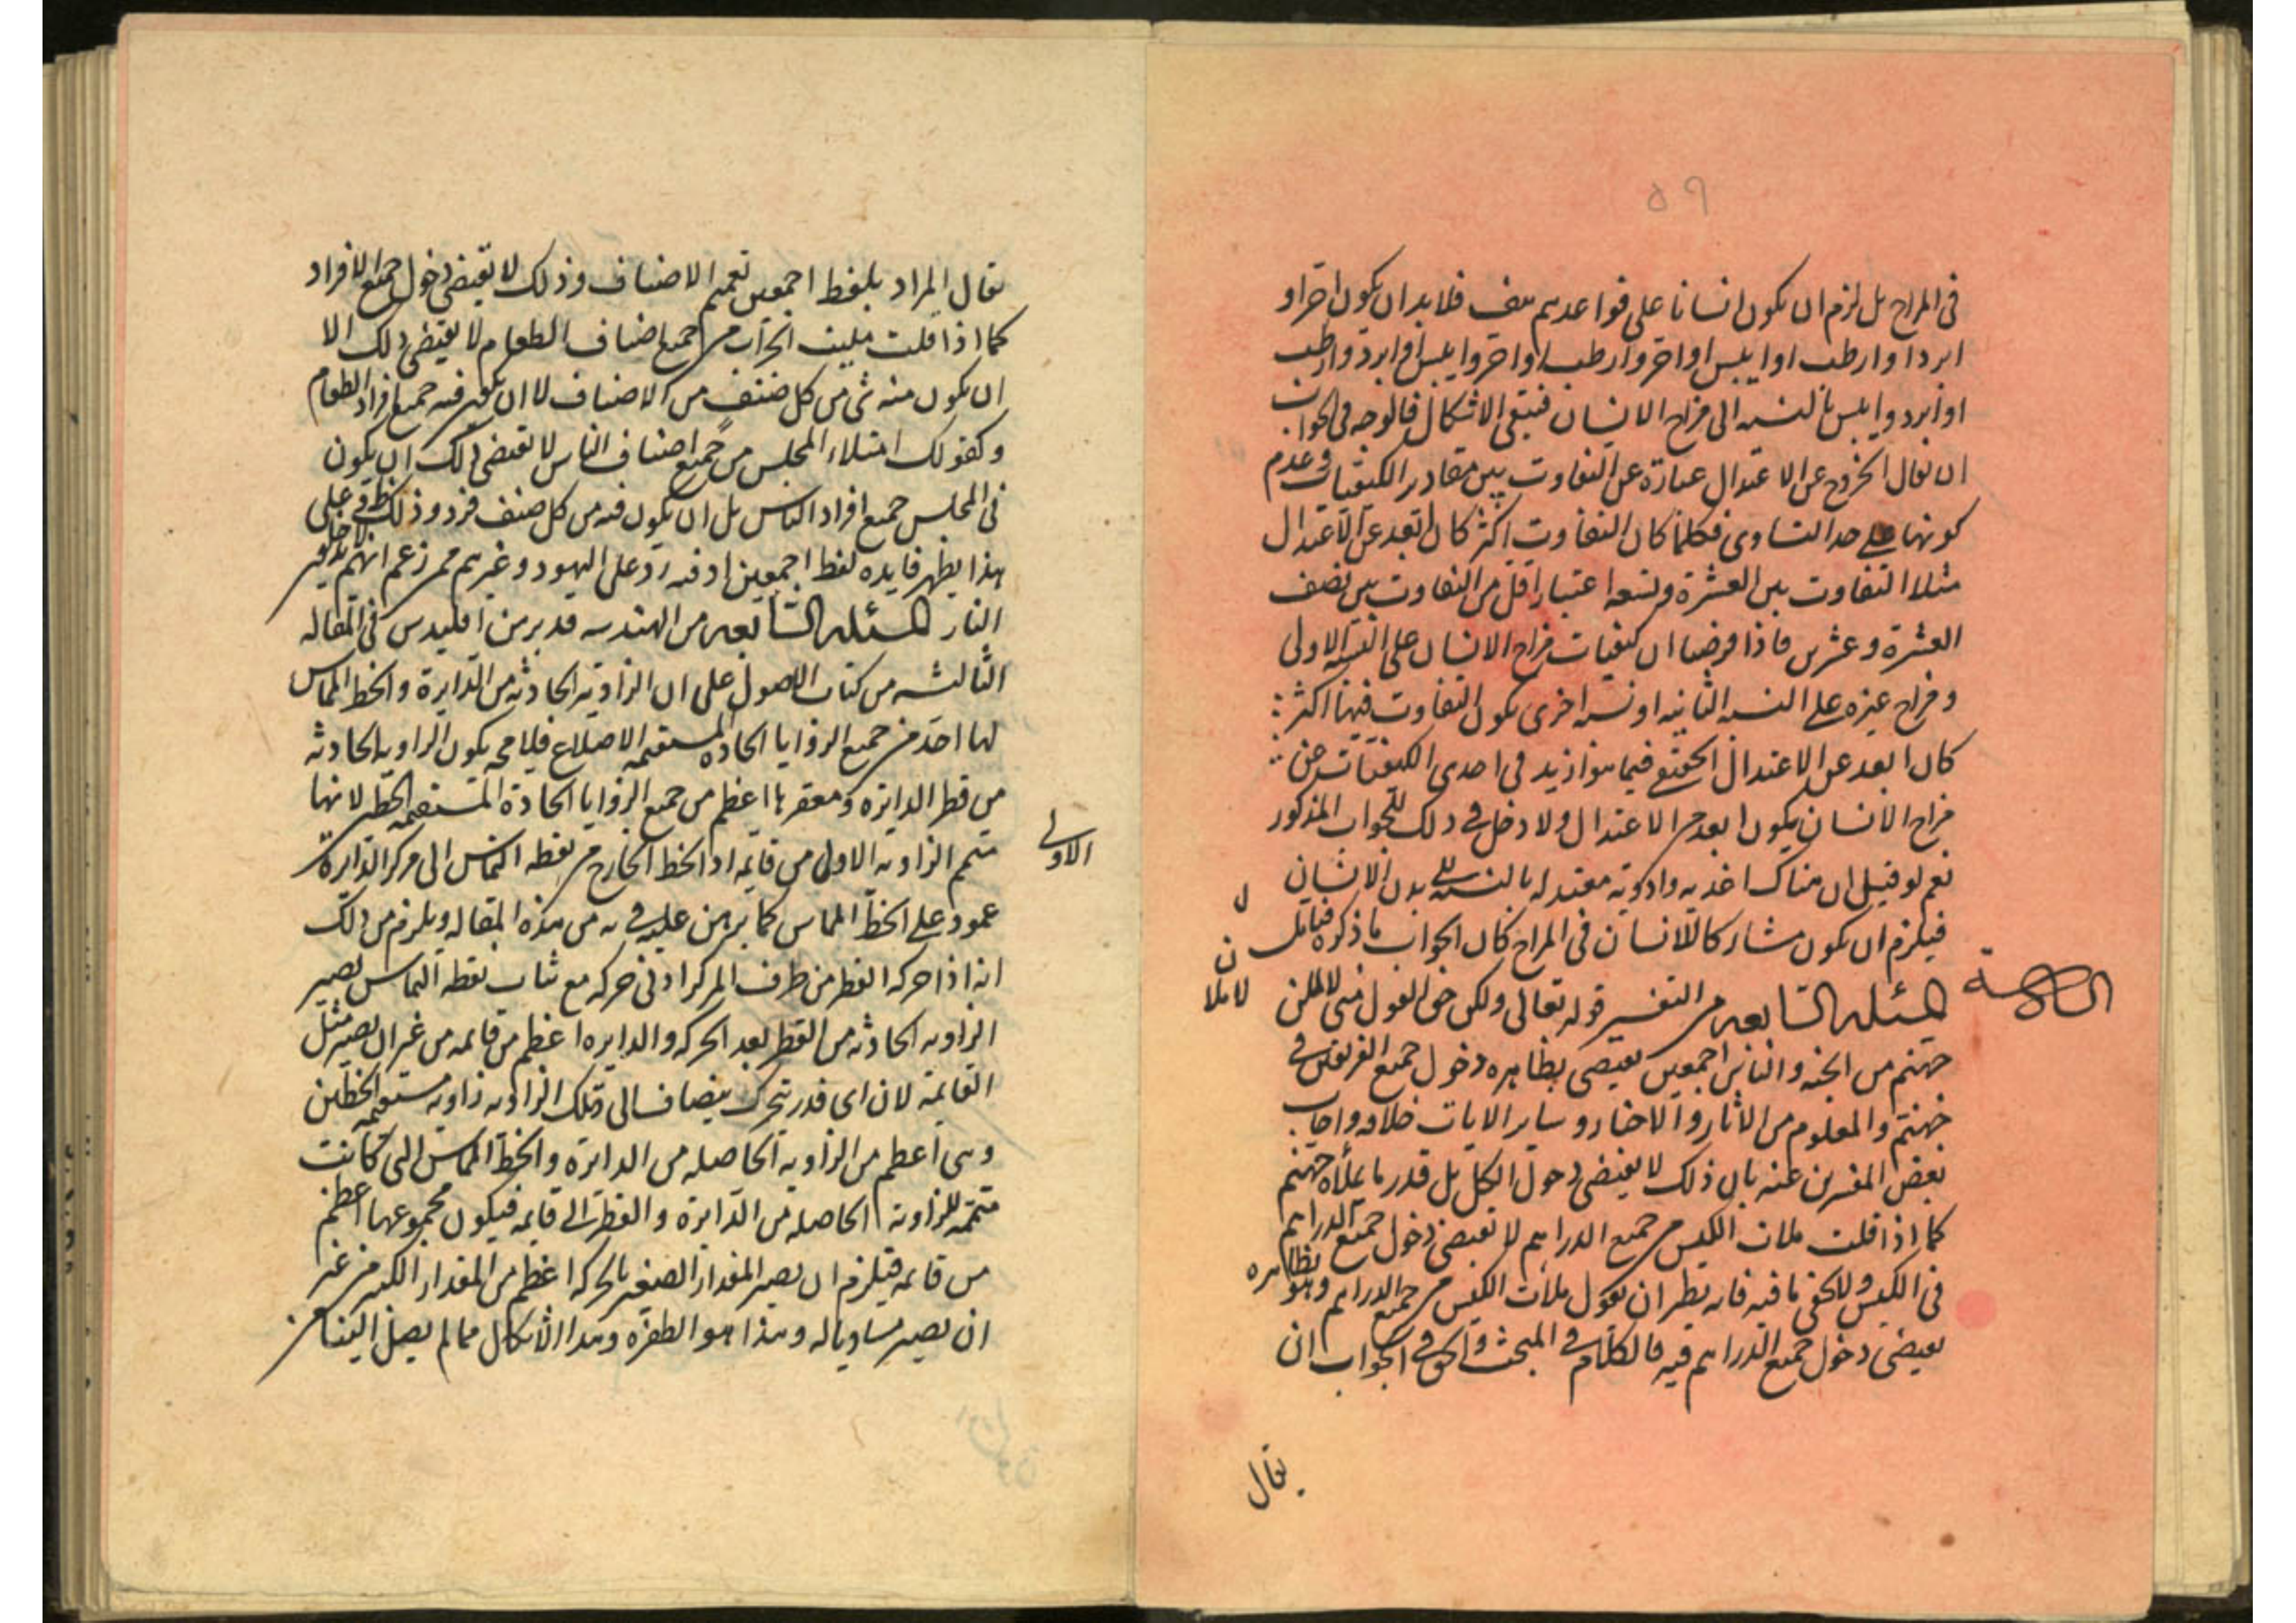 ٥٩
فى المزاج بل لزم ان يكون انسانا على قواعدهم هف فلا بد ان يكون احر او
ابرد او ارطب او ايبس او احر وارطب او احر وايبس او ابرد وارطب
او ابرد وايبس بالنسبه الى مزاج الانسان فيبقى الاشكال فالوجه فى الجواب
ان يقال الخروج عن الاعتدال عبارة عن التفاوت بين مقادير الكيفيات وعدم
كونها على حد التساوى فكلما كان التفاوت اكثر كان ابعد عن الاعتدال
مثلا التفاوت بين العشرة وتسعه اعتبارا اقل من التفاوت بين نصف
العشرة وعشرين فاذا فرضنا ان كيفيات مزاج الانسان على النسبه الاولى
ومزاج غيره على النسبه الثانيه او نسبه اخرى يكون التفاوت فيها اكثر
كان ابعد عن الاعتدال الحقيقى فيما هو ازيد فى احدى الكيفيات من
مزاج الانسان يكون ابعد من الاعتدال ولا دخل فى ذلك للجواب المذكور
نعم لو قيل ان هناك اغذيه وادويه معتدله بالنسبه الى بدن الانسان
فيلزم ان يكون مشاركا للانسان فى المزاج كان الجواب ما ذكره فتامل
المسئله السابعه من التفسير قوله تعالى ولكن حق القول منى لاملئن
السادسة
ن
لاملا
جهنم من الجنه والناس اجمعين يقتضى بظاهره دخول جميع الفريقين فى
جهنم والمعلوم من الاثار والاخبار وساير الايات خلافه واجاب
بعض المفسرين عنه بان ذلك لا يقتضى دخول الكل بل قدر ما يملأه جهنم
كما اذا قلت ملات الكيس من جميع الدراهم لا يقتضى دخول جميع الدراهم
فى الكيس ولا يخفى ما فيه فانه نظير ان يقول ملأت الكيس من جميع الدراهم وهو بظاهره
يقتضى دخول جميع الدراهم فيه فالكلام فى المبحث والحق فى الجواب ان
يقال
يقال المراد بلفظ اجمعين تعميم الاصناف وذلك لا يقتضى دخول جميع الافراد
كما اذا قلت مليت الجراب من جميع اصناف الطعام لا يقتضى ذلك الا
ان يكون منه شى من كل صنف من الاصناف لا ان يكون فيه جميع افراد الطعام
وكقولك امتلاء المجلس من جميع اصناف الناس لا يقتضى ذلك ان يكون
فى المجلس جميع افراد الناس بل ان يكون فيه من كل صنف فرد وذلك ظ وعلى
هذا يظهر فايده لفظ اجمعين اذ فيه رد على اليهود وغيرهم ممن زعم انهم لا يدخلون
النار المسئله السابعه من الهندسه قد برهن اقليدس فى المقاله
الثالثه من كتاب الاصول على ان الزاويه الحادثه من الدايرة والخط المماس
لها احد من جميع الزوايا الحاده المستقيمه الاضلاع فيلزم ح يكون الزاويه الحادثه
من قطر الدايره ومقعرها اعظم من جميع الزوايا الحادة المستقيمه الخط لانها
متمم الزاويه الاولى من قايمه اذ الخط الخارج من نقطه التماس الى مركز الدايرة
الاولى
عمود على الخط المماس كما برهن عليه فى يه من هذه المقاله ويلزم من ذلك
انه اذا حركه القطر من طرف المركز ادنى حركه مع ثبات نقطه التماس يصير
الزاويه الحادثه من القطر بعد الحركه والدايره اعظم من قايمه من غير ان يصير مثل
القايمة لان اى قدر تحرك ينضاف الى تلك الزاويه زاويه مستقيمه الخطين
وهى اعظم من الزاويه الحاصله من الدايره والخط المماس التى كانت
متممه للزاويه الحاصله من الدايره والقطر الى قايمه فيكون مجموعهما اعظم
من قايمه فيلزم ان يصير المقدار الصغير بالحركه اعظم من المقدار الكبير من غير
ان يصير مساويا له وهذا هو الطفره وهذا الاشكال مما لم يصل الينا من